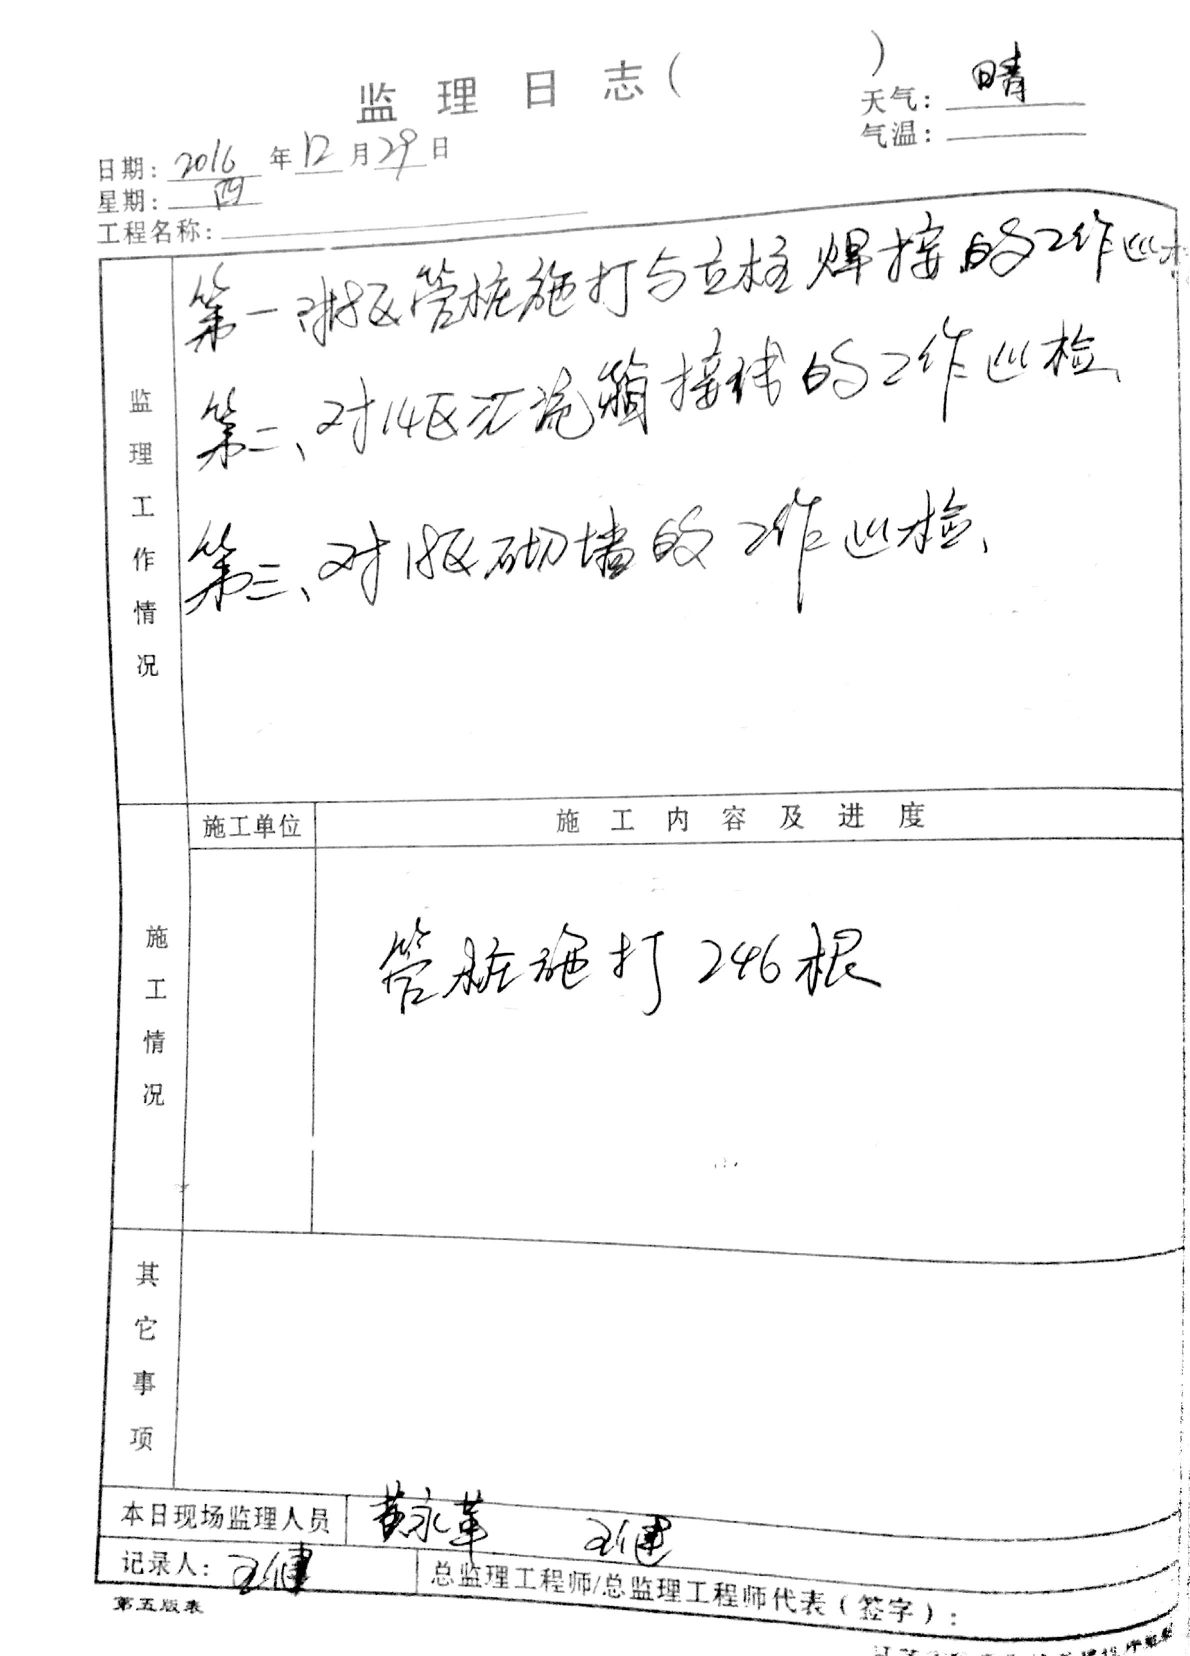 监理日志（　　　）
天气：晴
气温：
日期：2016年12月29日
星期：四
工程名称：
第一、对18区管桩施打与立柱焊接的工作巡检
第二、对14区汇流箱接线的工作巡检、
第三、对18区砌墙的工作巡检、
监理工作情况
施工单位　施工内容及进度
施工情况
管桩施打246根
其它事项
本日现场监理人员　黄永革　王健
记录人：王健　总监理工程师/总监理工程师代表（签字）：
第五版表